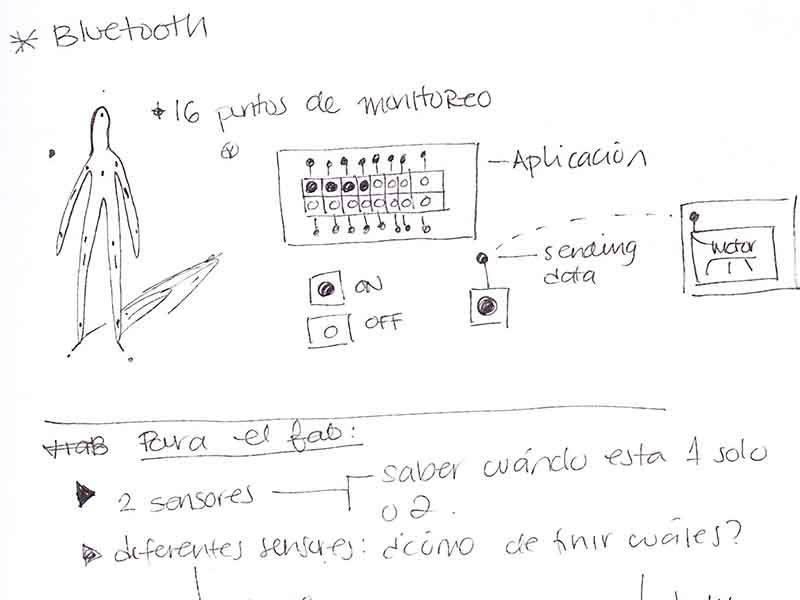 * Bluetooth
* 16 puntos de monitoreo
Aplicación
sending
data
motor
ON
OFF
Para el fab:
2 sensores
saber cuándo esta 1 solo
o 2.
diferentes sensores: ¿cómo definir cuáles?